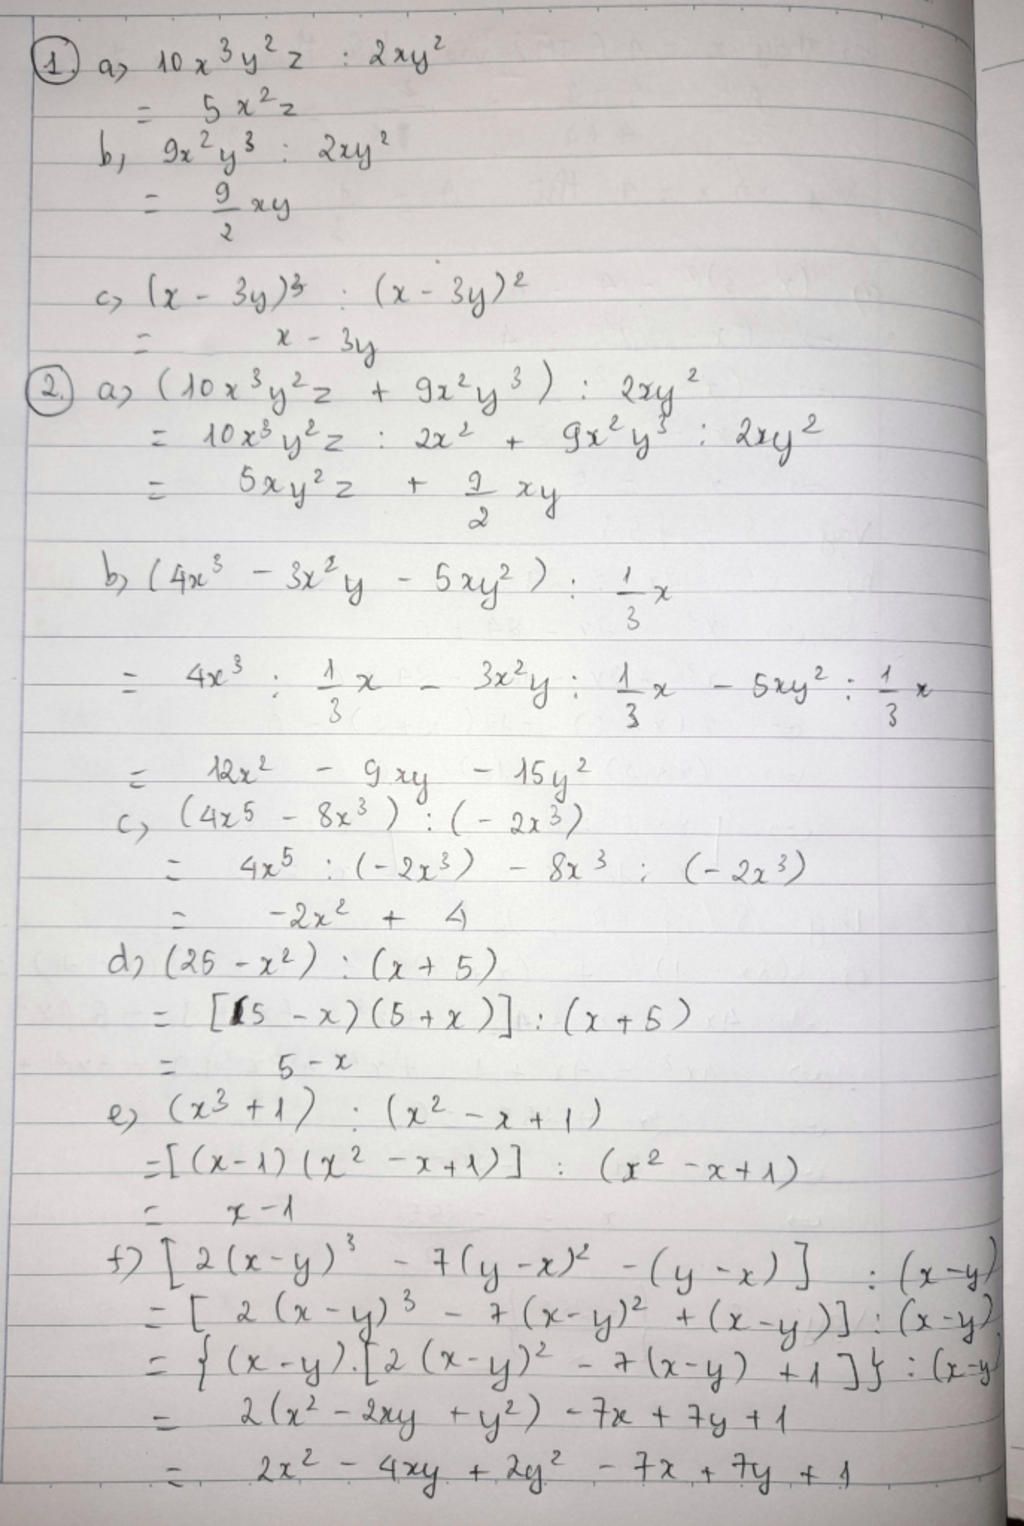 1. a) 10x³y²z : 2xy²
= 5x²z
b) 9x²y³ : 2xy²
= 9/2 xy
c) (x - 3y)³ : (x - 3y)²
= x - 3y
2. a) (10x³y²z + 9x²y³) : 2xy²
= 10x³y²z : 2x² + 9x²y³ : 2xy²
= 5xy²z + 9/2 xy
b) (4x³ - 3x²y - 5xy²) : 1/3 x
= 4x³ : 1/3 x - 3x²y : 1/3 x - 5xy² : 1/3 x
= 12x² - 9xy - 15y²
c) (4x⁵ - 8x³) : (-2x³)
= 4x⁵ : (-2x³) - 8x³ : (-2x³)
= -2x² + 4
d) (25 - x²) : (x + 5)
= [(5 - x)(5 + x)] : (x + 5)
= 5 - x
e) (x³ + 1) : (x² - x + 1)
= [(x-1)(x² - x+1)] : (x² - x+1)
= x - 1
f) [2(x-y)³ - 7(y-x)² - (y-x)] : (x-y)
= [2(x-y)³ - 7(x-y)² + (x-y)] : (x-y)
= {(x-y).[2(x-y)² - 7(x-y) + 1]} : (x-y
= 2(x² - 2xy + y²) - 7x + 7y + 1
= 2x² - 4xy + 2y² - 7x + 7y + 1